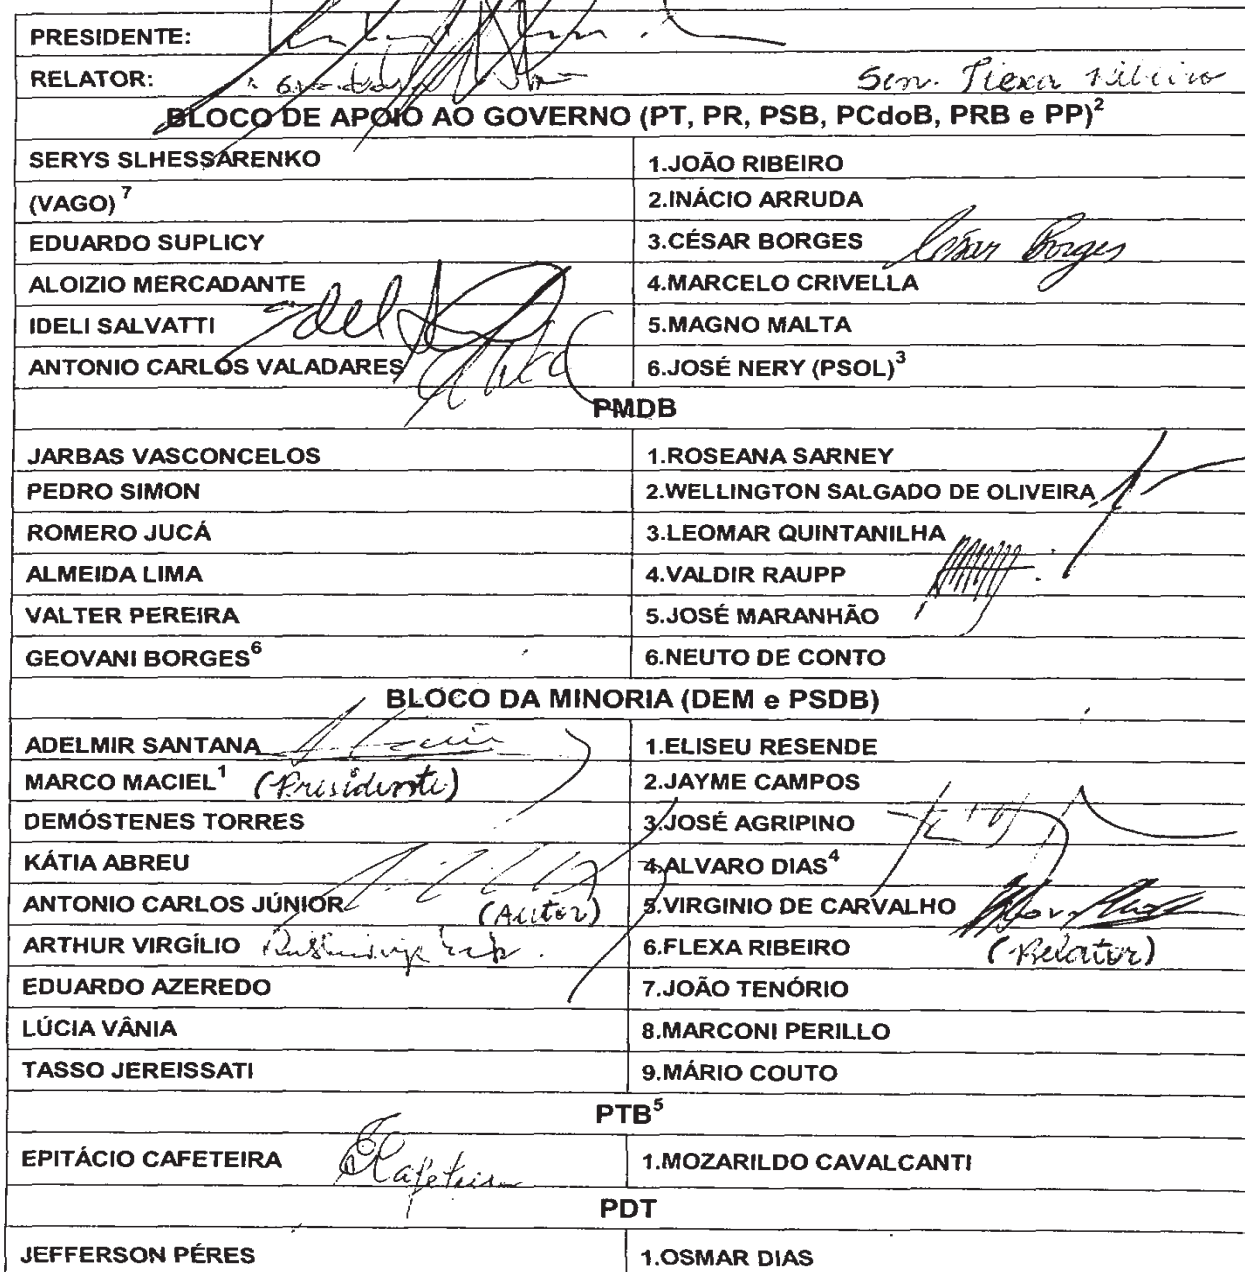 PRESIDENTE:
RELATOR: Sen. Flexa Ribeiro
BLOCO DE APOIO AO GOVERNO (PT, PR, PSB, PCdoB, PRB e PP)²
SERYS SLHESSARENKO 1.JOÃO RIBEIRO
(VAGO) ⁷ 2.INÁCIO ARRUDA
EDUARDO SUPLICY 3.CÉSAR BORGES César Borges
ALOIZIO MERCADANTE 4.MARCELO CRIVELLA
IDELI SALVATTI 5.MAGNO MALTA
ANTONIO CARLOS VALADARES 6.JOSÉ NERY (PSOL)³
PMDB
JARBAS VASCONCELOS 1.ROSEANA SARNEY
PEDRO SIMON 2.WELLINGTON SALGADO DE OLIVEIRA
ROMERO JUCÁ 3.LEOMAR QUINTANILHA
ALMEIDA LIMA 4.VALDIR RAUPP
VALTER PEREIRA 5.JOSÉ MARANHÃO
GEOVANI BORGES⁶ 6.NEUTO DE CONTO
BLOCO DA MINORIA (DEM e PSDB)
ADELMIR SANTANA 1.ELISEU RESENDE
MARCO MACIEL¹ (Presidente) 2.JAYME CAMPOS
DEMÓSTENES TORRES 3.JOSÉ AGRIPINO
KÁTIA ABREU 4.ALVARO DIAS⁴
ANTONIO CARLOS JÚNIOR (Autor) 5.VIRGINIO DE CARVALHO
ARTHUR VIRGÍLIO 6.FLEXA RIBEIRO (Relator)
EDUARDO AZEREDO 7.JOÃO TENÓRIO
LÚCIA VÂNIA 8.MARCONI PERILLO
TASSO JEREISSATI 9.MÁRIO COUTO
PTB⁵
EPITÁCIO CAFETEIRA ECafeteira 1.MOZARILDO CAVALCANTI
PDT
JEFFERSON PÉRES 1.OSMAR DIAS